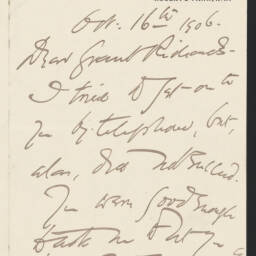 Oct. 16th 1906.
Dear Grant Richards -
I tried to get on to
you by telephone, but,
alas, did not succeed.
You were good enough
to ask me to let you